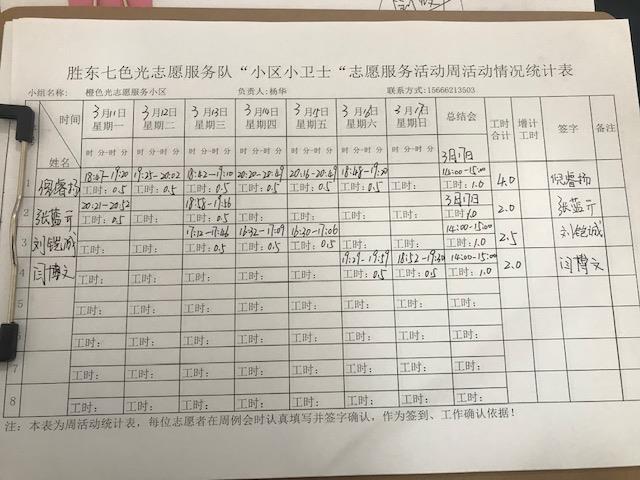 胜东七色光志愿服务队“小区小卫士“志愿服务活动周活动情况统计表
小组名称: 橙色光志愿服务小区 负责人:杨华 联系方式:15666213503
时间 姓名 3月11日 星期一 3月12日 星期二 3月13日 星期三 3月14日 星期四 3月15日 星期五 3月16日 星期六 3月17日 星期日 总结会 3月17日 工时合计 增计工时 签字 备注
时 分-时 分 时 分-时 分 时 分-时 分 时 分-时 分 时 分-时 分 时 分-时 分 时 分-时 分
1 倪睿扬 18:47-19:20 19:25-20:02 18:42-19:10 20:20-20:49 20:16-20:49 18:48-19:20 14:00-15:00 4.0 倪睿扬
工时: 0.5 工时: 0.5 工时: 0.5 工时: 0.5 工时: 0.5 工时: 0.5 工时: 工时: 1.0
2 张蓝亓 20:21-20:52 18:58-19:26 3月17日 2.0 张蓝亓
工时: 0.5 工时: 工时: 0.5 工时: 工时: 工时: 工时: 工时: 1.0
3 刘铠诚 17:12-17:46 16:32-17:09 16:30-17:06 14:00-15:00 2.5 刘铠诚
工时: 工时: 工时: 0.5 工时: 0.5 工时: 0.5 工时: 工时: 工时: 1.0
4 闫博文 19:29-19:59 18:52-19:30 14:00-15:00 2.0 闫博文
工时: 工时: 工时: 工时: 工时: 工时: 0.5 工时: 0.5 工时: 1.0
5
工时: 工时: 工时: 工时: 工时: 工时: 工时: 工时:
6
工时: 工时: 工时: 工时: 工时: 工时: 工时: 工时:
7
工时: 工时: 工时: 工时: 工时: 工时: 工时: 工时:
8
工时: 工时: 工时: 工时: 工时: 工时: 工时: 工时:
注: 本表为周活动统计表，每位志愿者在周例会时认真填写并签字确认，作为签到、工作确认依据！